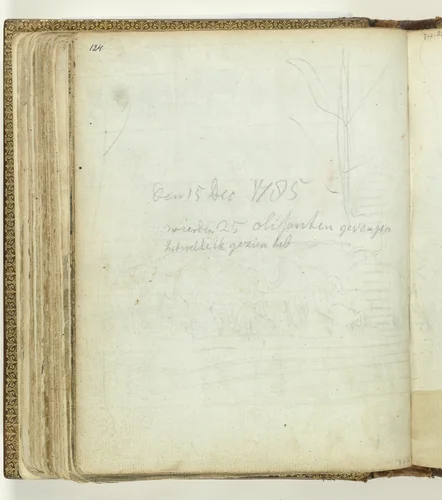 124
Den 15 Dec 1785
wierden 25 olifanten gevangen
het welk ik gezien heb